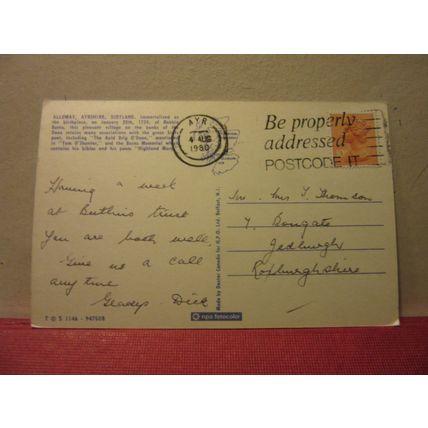 ALLOWAY, AYRSHIRE, SCOTLAND. Immortalised as
the birthplace, on January 25th, 1759, of Robert
Burns, this pleasant village on the banks of the
Doon retains many associations with the great
poet, including "The Auld Brig O'Doon," mentioned
in "Tam O'Shanter," and the Burns Memorial which
contains his bibles and his poem "Highland Mary
AYR
4 AUG
1980
Be properly
addressed
POSTCODE IT
Having a week
at Butlins trust
you are both well.
Give us a call
any time
Gladys Dick
T O S 1146 - 947608
Made by Dexter Canada for N.P.O. Ltd. Belfast, N.I.
npo fotocolor
Mr. Mrs T. Thomson
7, Bongate
Jedburgh
Roxburghshire